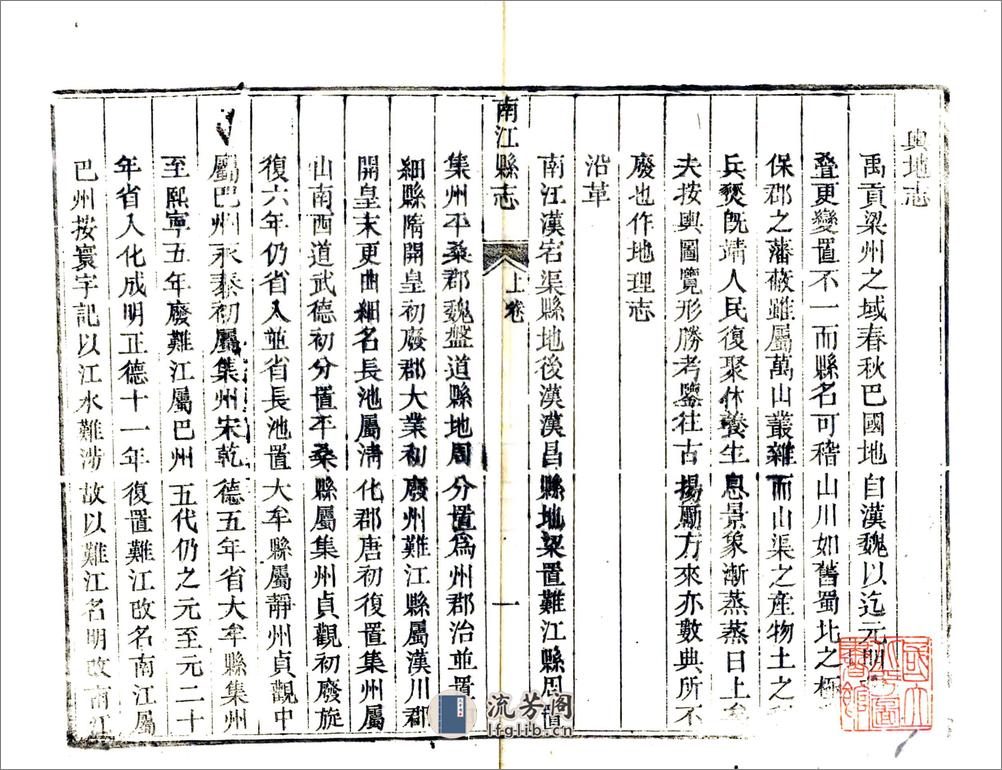 輿地志
禹貢梁州之域春秋巴國地自漢魏以迄元明
疊更變置不一而縣名可稽山川如舊蜀北之極
保郡之藩蔽雖屬萬山叢雜而山渠之產物土之
兵燹既靖人民復聚休養生息景象漸蒸蒸日上矣
夫按輿圖覽形勝考鑒往古揚厲方來亦數典所不
廢也作地理志
沿革
南江漢宕渠縣地後漢漢昌縣地梁置難江縣周置
南江縣志
上卷
一
集州平桑郡魏盤道縣地周分置為州郡治並置
細縣隋開皇初廢郡大業初廢州難江縣屬漢川郡
開皇末更曲細名長池屬清化郡唐初復置集州屬
山南西道武德初分置平桑縣屬集州貞觀初廢旋
復六年仍省入並省長池置大牟縣屬靜州貞觀中
屬巴州永泰初屬集州宋乾德五年省大牟縣集州
至熙寧五年廢難江屬巴州五代仍之元至元二十
年省入化成明正德十一年復置難江改名南江屬
巴州按寰宇記以江水難涉故以難江名明改南江
國立北平圖書館
流芳阁
lfglib.com